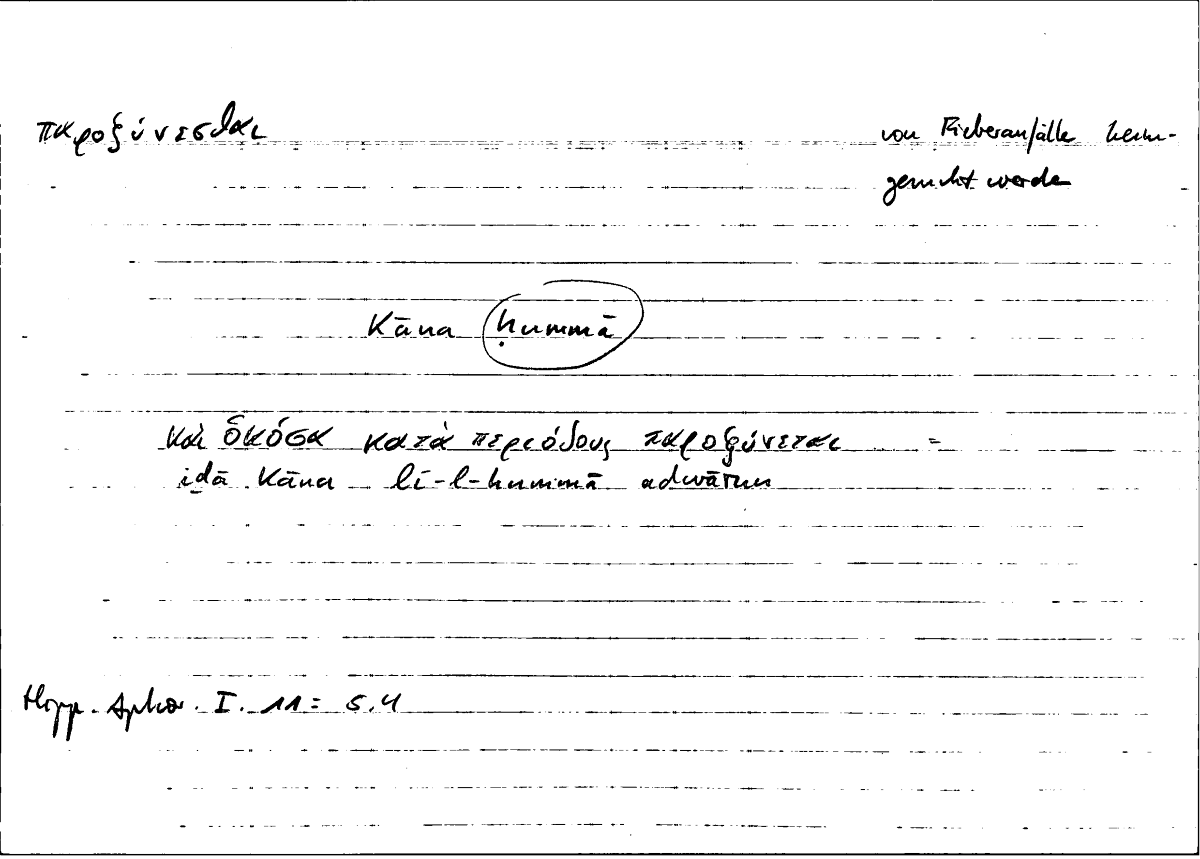 παροξύνεσθαι
von Fieberanfälle heim-
gesucht werde
Kāna ḥummā
καὶ ὁκόσα κατὰ περιόδους παροξύνεται =
iḏā Kāna li-l-ḥummā adwārun
Hipp. Aphor. I. 11 = 5.4